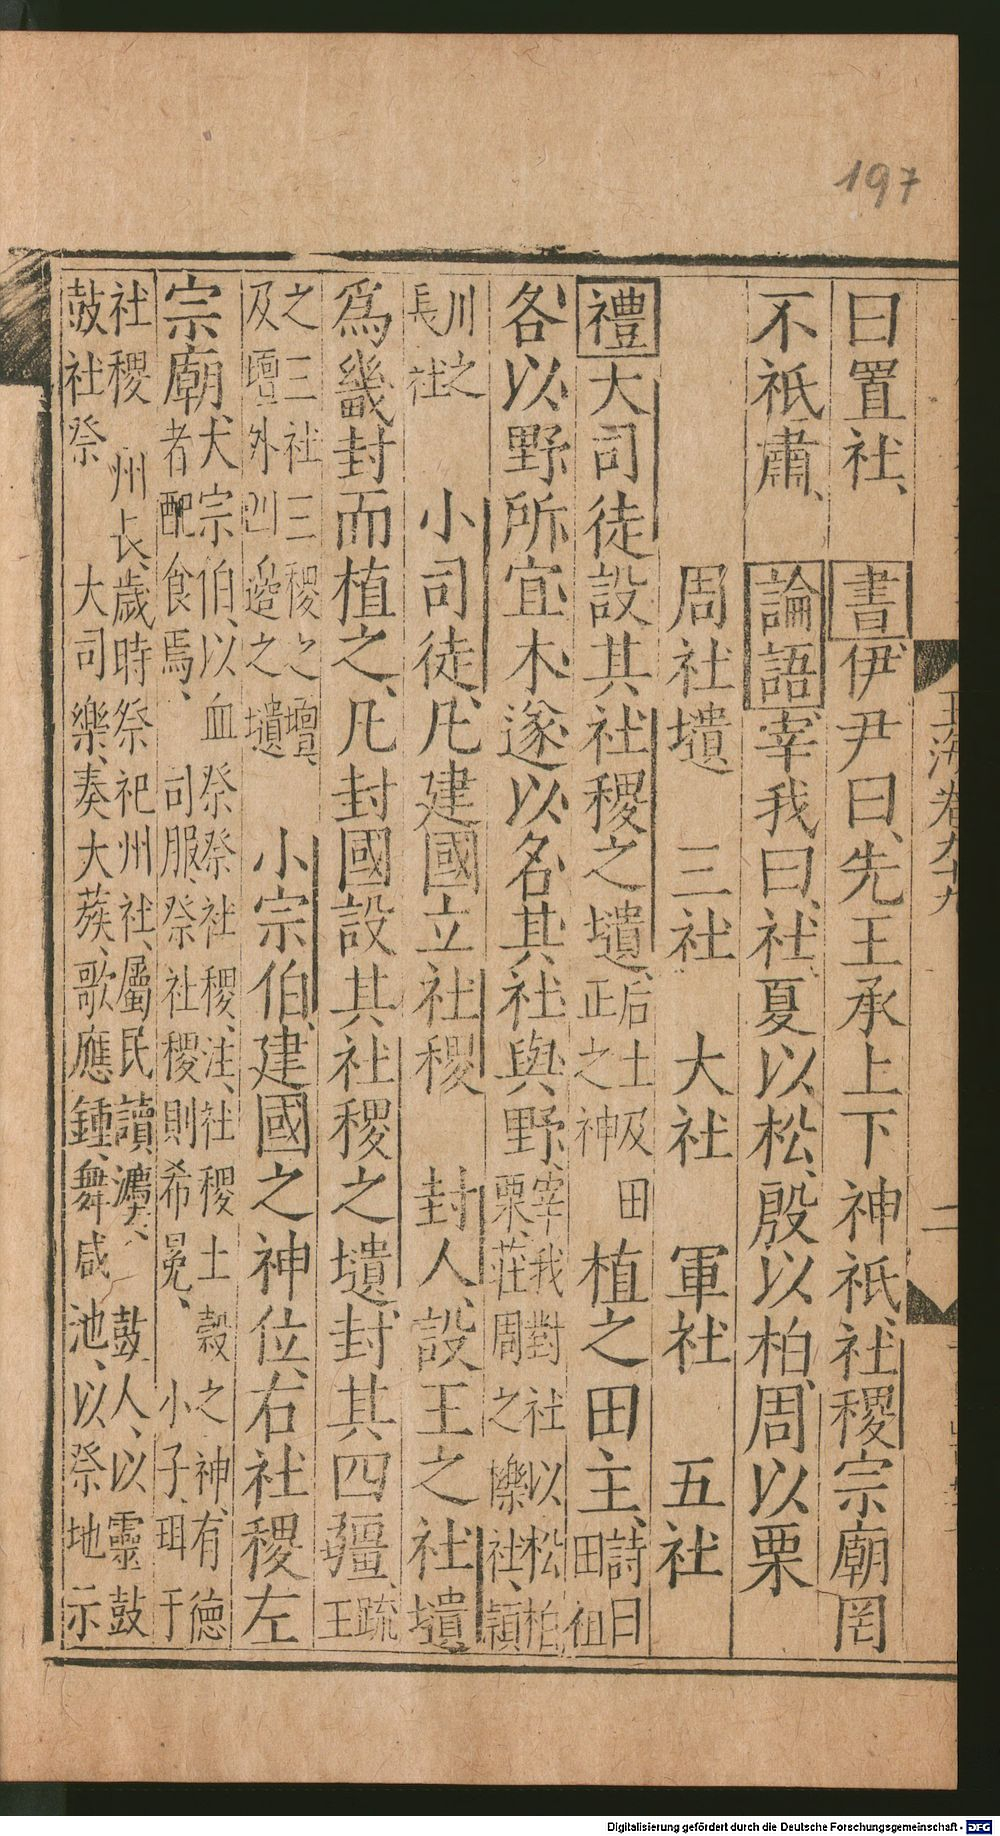 197
曰置社、　書伊尹曰、先王承上下神祇、社稷宗廟罔
不祇肅、　論語宰我曰、社、夏以松、殷以柏、周以栗
周社壝　三社　大社　軍社　五社
禮大司徒設其社稷之壝、后土及田正之神植之田主、詩曰田祖
各以野所宜木、遂以名其社與野、宰我對社以松柏栗、莊周之櫟社、潁
川之長社　小司徒、凡建國立社稷　封人、設王之社壝
爲畿封而植之、凡封國設其社稷之壝、封其四疆、疏王
之三社三稷之壇及壇外四邊之壝　小宗伯、建國之神位、右社稷左
宗廟、大宗伯、以血祭祭社稷、注、社稷土穀之神、有德者配食焉、　司服、祭社稷則希冕、　小子、珥于
社稷　州長、歲時祭祀州社、屬民讀灋、　鼓人、以靈鼓鼓社祭　大司樂、奏大蔟、歌應鍾、舞咸池、以祭地示
玉海卷九十九
二
Digitalisierung gefördert durch die Deutsche Forschungsgemeinschaft - DFG